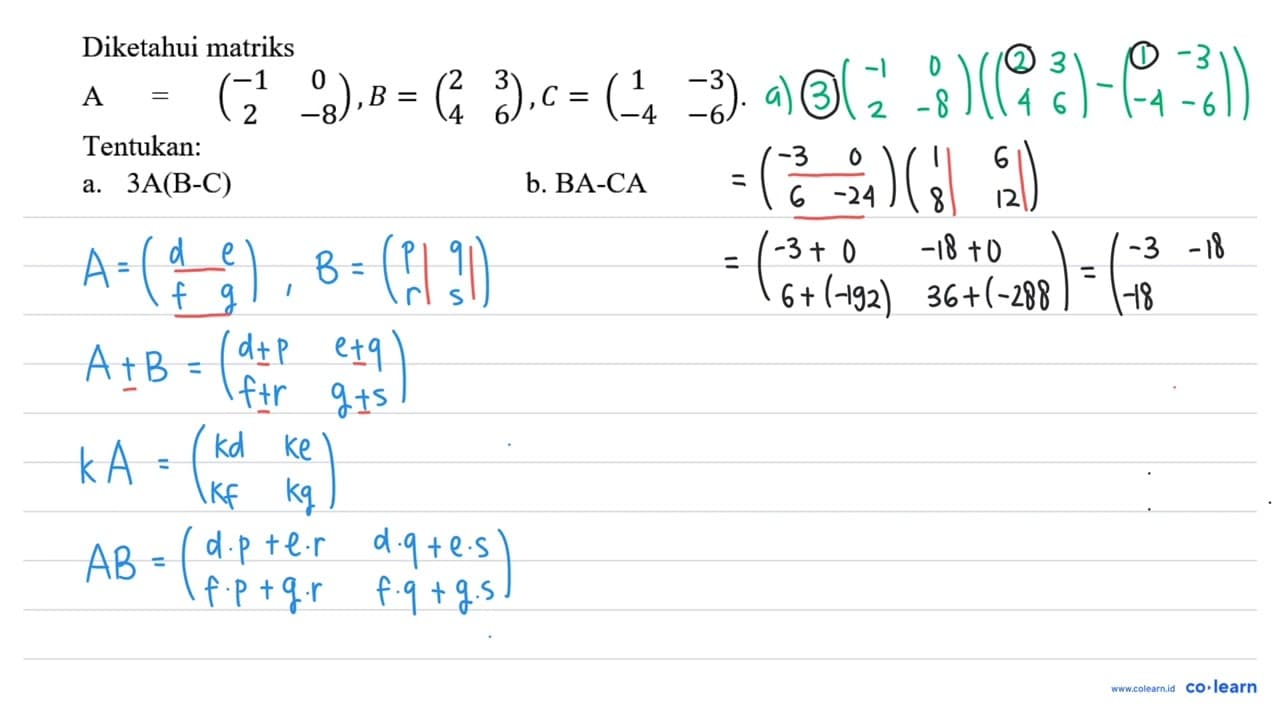 Diketahui matriks
A = (−1 0 2 −8), B = (2 3 4 6), C = (1 −3 −4 −6).
Tentukan:
a. 3A(B-C) b. BA-CA
a) 3 (-1 0 2 -8) ((2 3 4 6) - (1 -3 -4 -6))
= (-3 0 6 -24) (1 6 8 12)
= (-3+0 -18+0 6+(-192) 36+(-288) = (-3 -18 -18
A = (d e f g), B = (p q r s)
A ± B = (d±p e±q f±r g±s)
kA = (kd ke kf kg)
AB = (d.p+e.r d.q+e.s f.p+g.r f.q+g.s)
www.colearn.id co·learn